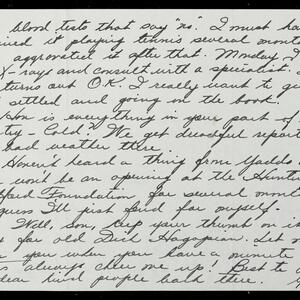 blood tests that say "no." I must ha
ured it playing tennis several mont
aggravated it after that. Monday I
X-rays and consult with a specialist.
turns out O.K. I really want to ge
settled and going on the book.
How is everything in your part of
try - Cold? We get dreadful report
bad weather there.
Haven't heard a thing from Yaddo.
won't be an opening at the Hunt
Foundation for several mont
guess I'll just fend for myself.
Well, son, keep your thumb on i
for old Dick Hagopian. Let
you when you have a minute
always cheer me up. Best to
dear kind people back there.